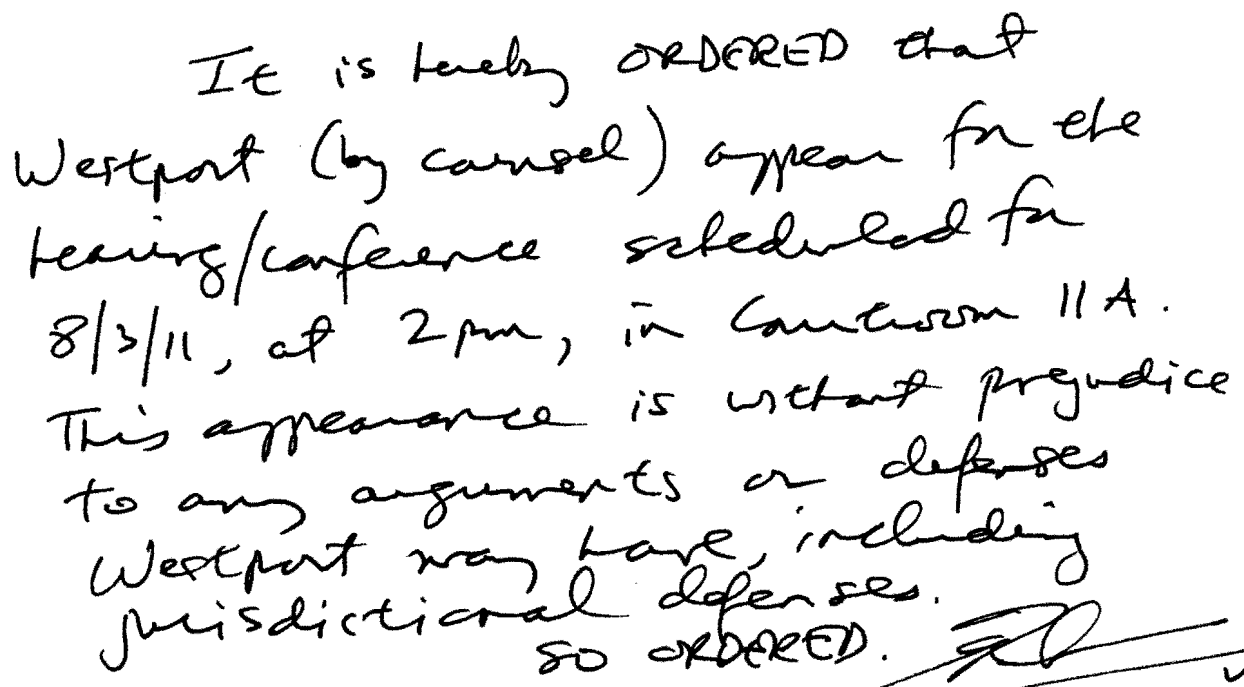 It is hereby ORDERED that
Westport (by counsel) appear for the
hearing/conference scheduled for
8/3/11, at 2 pm, in Courtroom 11A.
This appearance is without prejudice
to any arguments or defenses
Westport may have, including
jurisdictional defenses.
SO ORDERED.